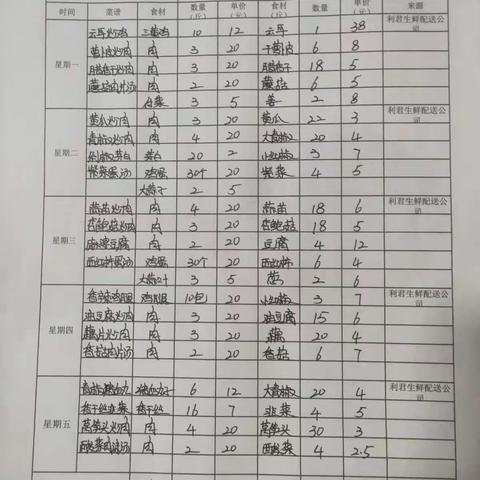 时间 菜谱 食材 数量（斤） 单价（元） 食材 数量 单价（元） 来源
星期一 云耳炒鸡 三黄鸡 10 12 云耳 1 38 利君生鲜配送公司
肉 3 20 6 8
肉 3 20 18 5
肉 2 20 6 5
白菜 3 5 姜 2 8
星期二 黄瓜炒肉 肉 3 20 黄瓜 22 3 利君生鲜配送公司
青椒炒肉 肉 4 20 大青椒 20 4
20 2 小红椒 3 7
紫菜蛋汤 鸡蛋 30个 20 紫菜 4 5
2 5
星期三 蒜苗炒肉 肉 4 20 蒜苗 18 6 利君生鲜配送公司
杏鲍菇炒肉 肉 3 20 杏鲍菇 18 5
麻婆豆腐 肉 2 20 豆腐 4 12
西红柿蛋汤 鸡蛋 30个 20 西红柿 6 4
3 5 葱 2 6
星期四 鸡腿 10包 20 小红椒 3 7 利君生鲜配送公司
油豆腐炒肉 肉 3 20 油豆腐 15 6
藕片炒肉 肉 3 20 藕 20 4
香菇肉片汤 肉 2 20 香菇 6 7
星期五 6 12 大青椒 20 4 利君生鲜配送公司
香干炒韭菜 香干 16 7 韭菜 4 5
莴笋头炒肉 肉 4 20 莴笋头 30 3
肉 2 20 4 2.5